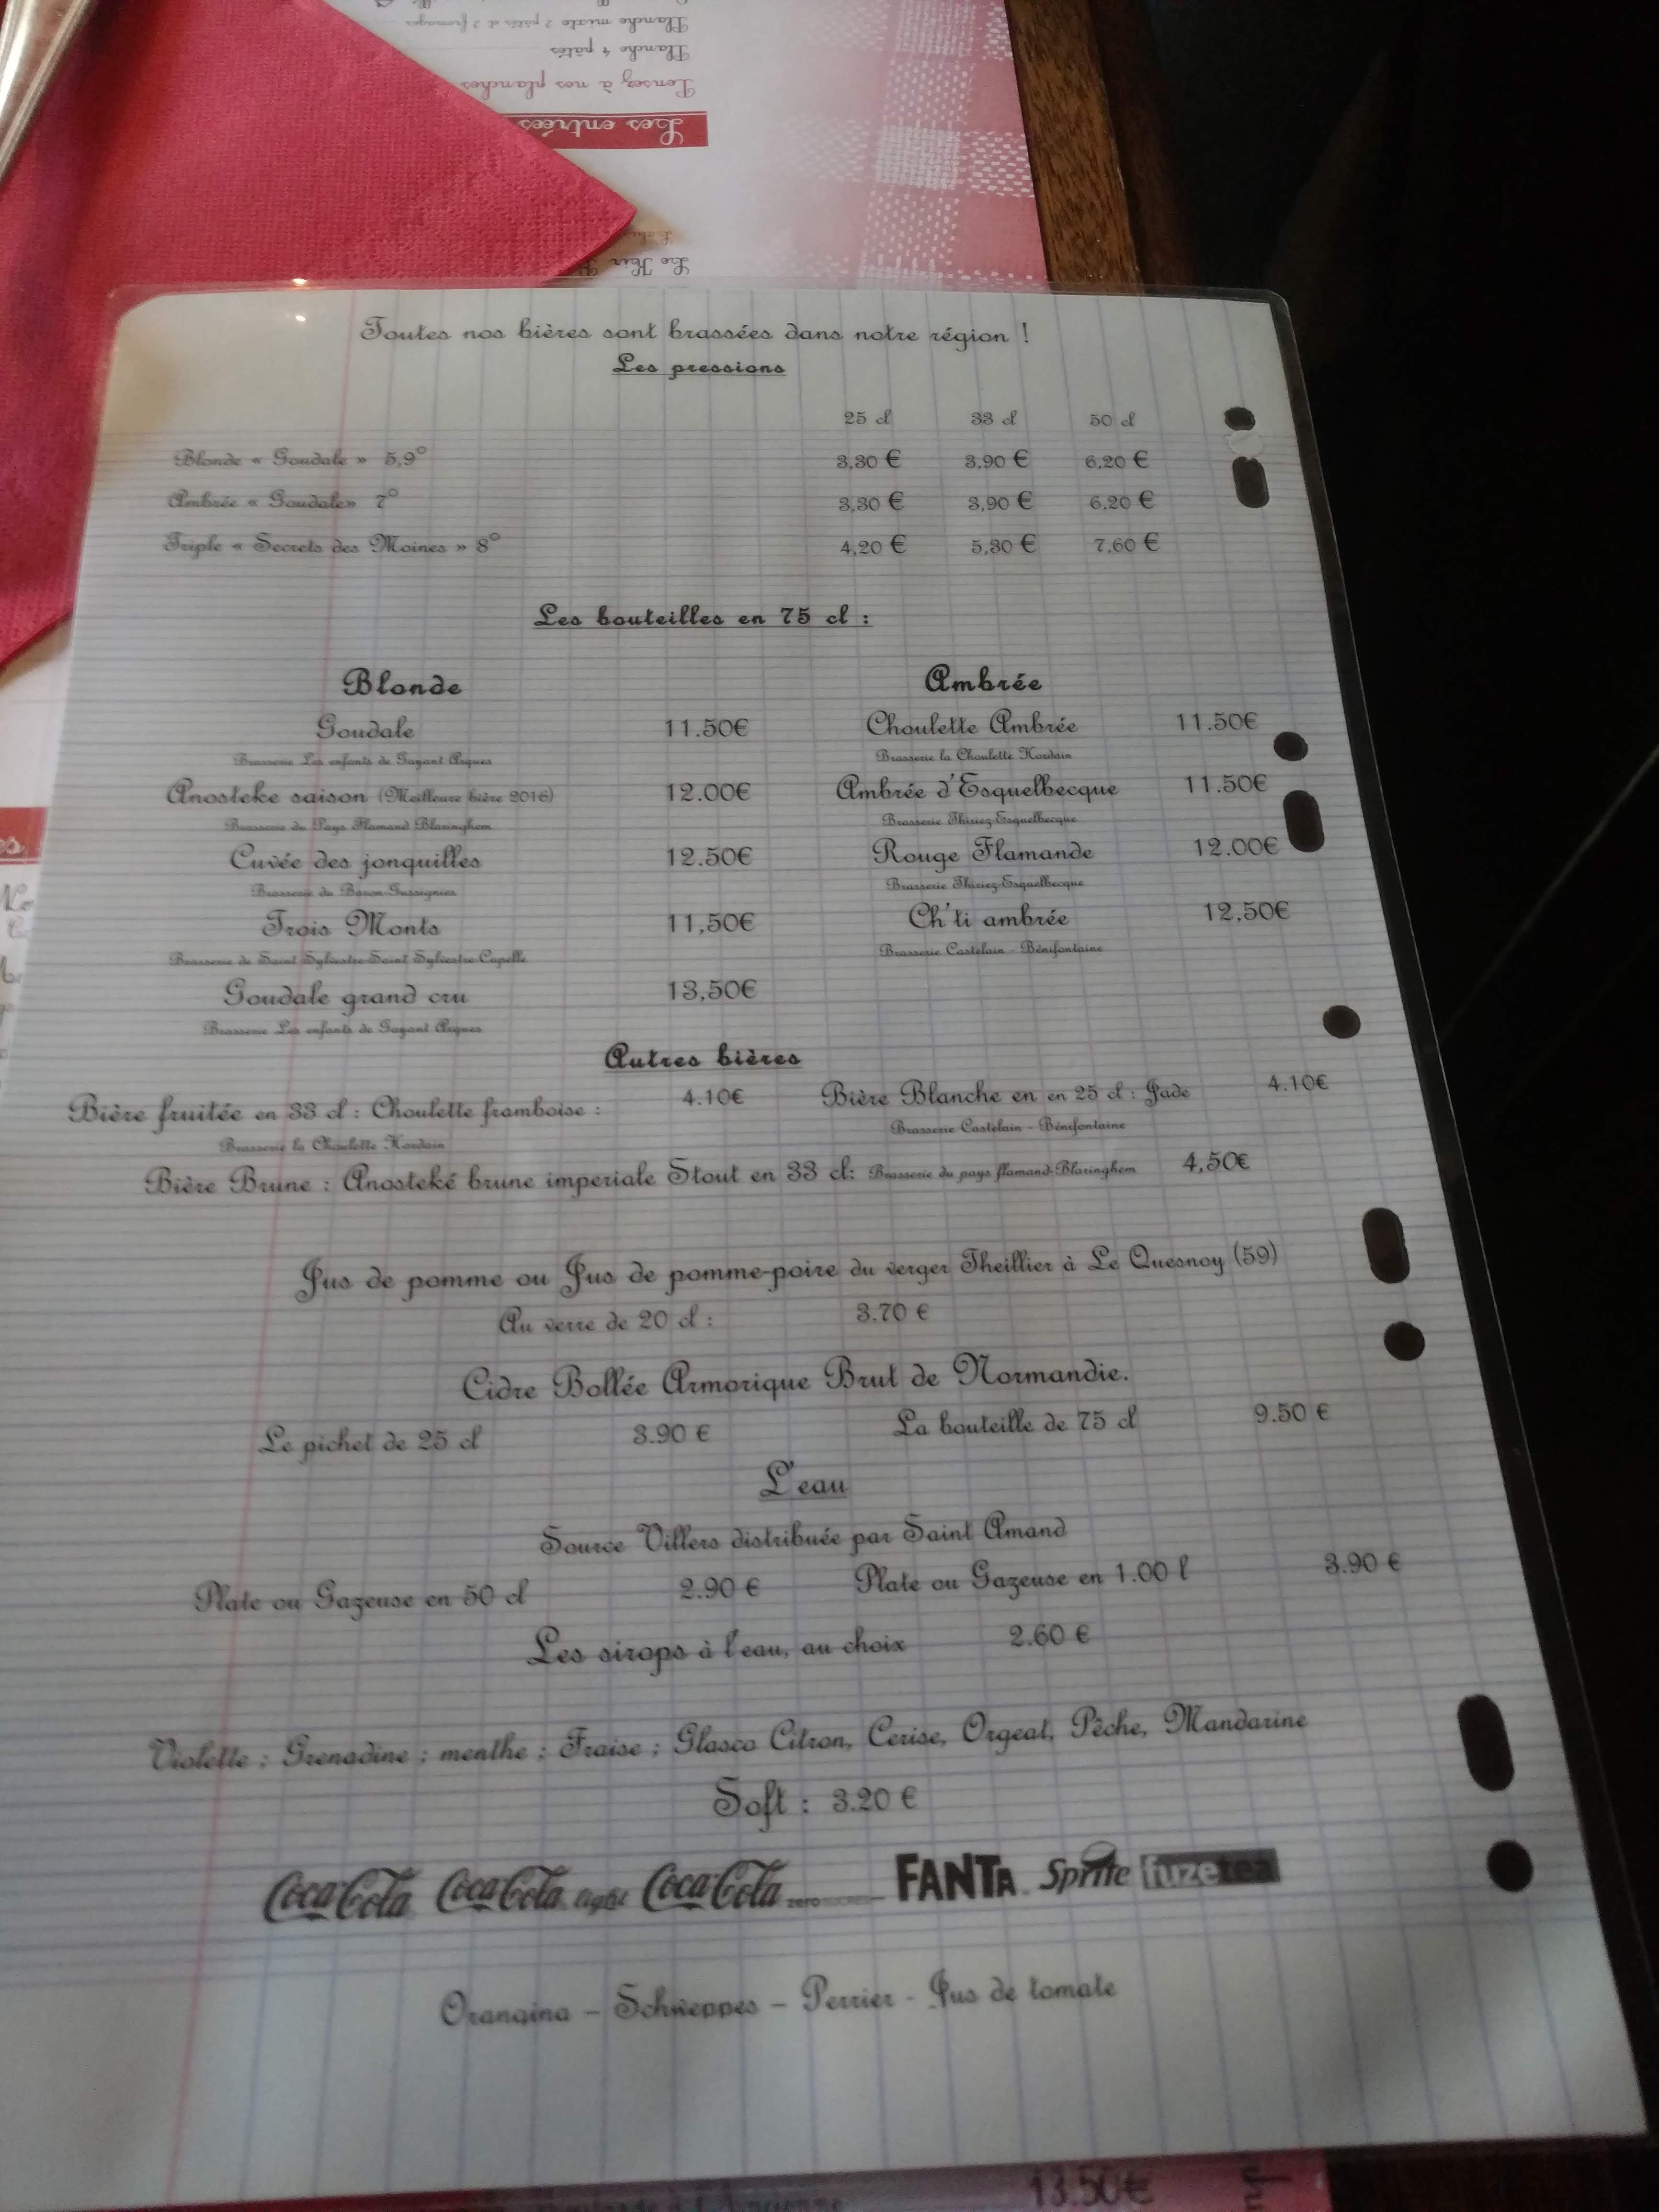 Planche mixte 2 pâtés et 2 fromages
Planche 4 pâtés
Pensez à nos planches
Les entrées
Le Kir
Toutes nos bières sont brassées dans notre région !
Les pressions
25 cl 33 cl 50 cl
Blonde « Goudale » 5,9° 3,30 € 3,90 € 6,20 €
Ambrée « Goudale» 7° 3,30 € 3,90 € 6,20 €
Triple « Secrets des Moines » 8° 4,20 € 5,30 € 7,60 €
Les bouteilles en 75 cl :
Blonde Ambrée
Goudale 11.50€ Choulette Ambrée 11.50€
Brasserie Les enfants de Gayant Arques Brasserie la Choulette Hordain
Anosteke saison (Meilleure bière 2016) 12.00€ Ambrée d'Esquelbecque 11.50€
Brasserie du Pays Flamand Blaringhem Brasserie Thiriez-Esquelbecque
Cuvée des jonquilles 12.50€ Rouge Flamande 12.00€
Brasserie du Baron-Gussignies Brasserie Thiriez-Esquelbecque
Trois Monts 11,50€ Ch'ti ambrée 12,50€
Brasserie de Saint Sylvestre-Saint Sylvestre-Capelle Brasserie Castelain - Bénifontaine
Goudale grand cru 13,50€
Brasserie Les enfants de Gayant Arques
Autres bières
Bière fruitée en 33 cl : Choulette framboise : 4.10€ Bière Blanche en en 25 cl : Jade 4.10€
Brasserie la Choulette Hordain Brasserie Castelain - Bénifontaine
Bière Brune : Anosteké brune imperiale Stout en 33 cl: Brasserie du pays flamand-Blaringhem 4,50€
Jus de pomme ou Jus de pomme-poire du verger Theillier à Le Quesnoy (59)
Au verre de 20 cl : 3.70 €
Cidre Bollée Armorique Brut de Normandie.
Le pichet de 25 cl 3.90 € La bouteille de 75 cl 9.50 €
L'eau
Source Villers distribuée par Saint Amand
Plate ou Gazeuse en 50 cl 2.90 € Plate ou Gazeuse en 1.00 l 3.90 €
Les sirops à l'eau, au choix 2.60 €
Violette ; Grenadine ; menthe ; Fraise ; Glasco Citron, Cerise, Orgeat, Pêche, Mandarine
Soft : 3.20 €
Coca-Cola Coca-Cola light Coca-Cola zero FANTA Sprite fuzetea
Orangina - Schweppes - Perrier - Jus de tomate
13.50€
à l'Ancienne